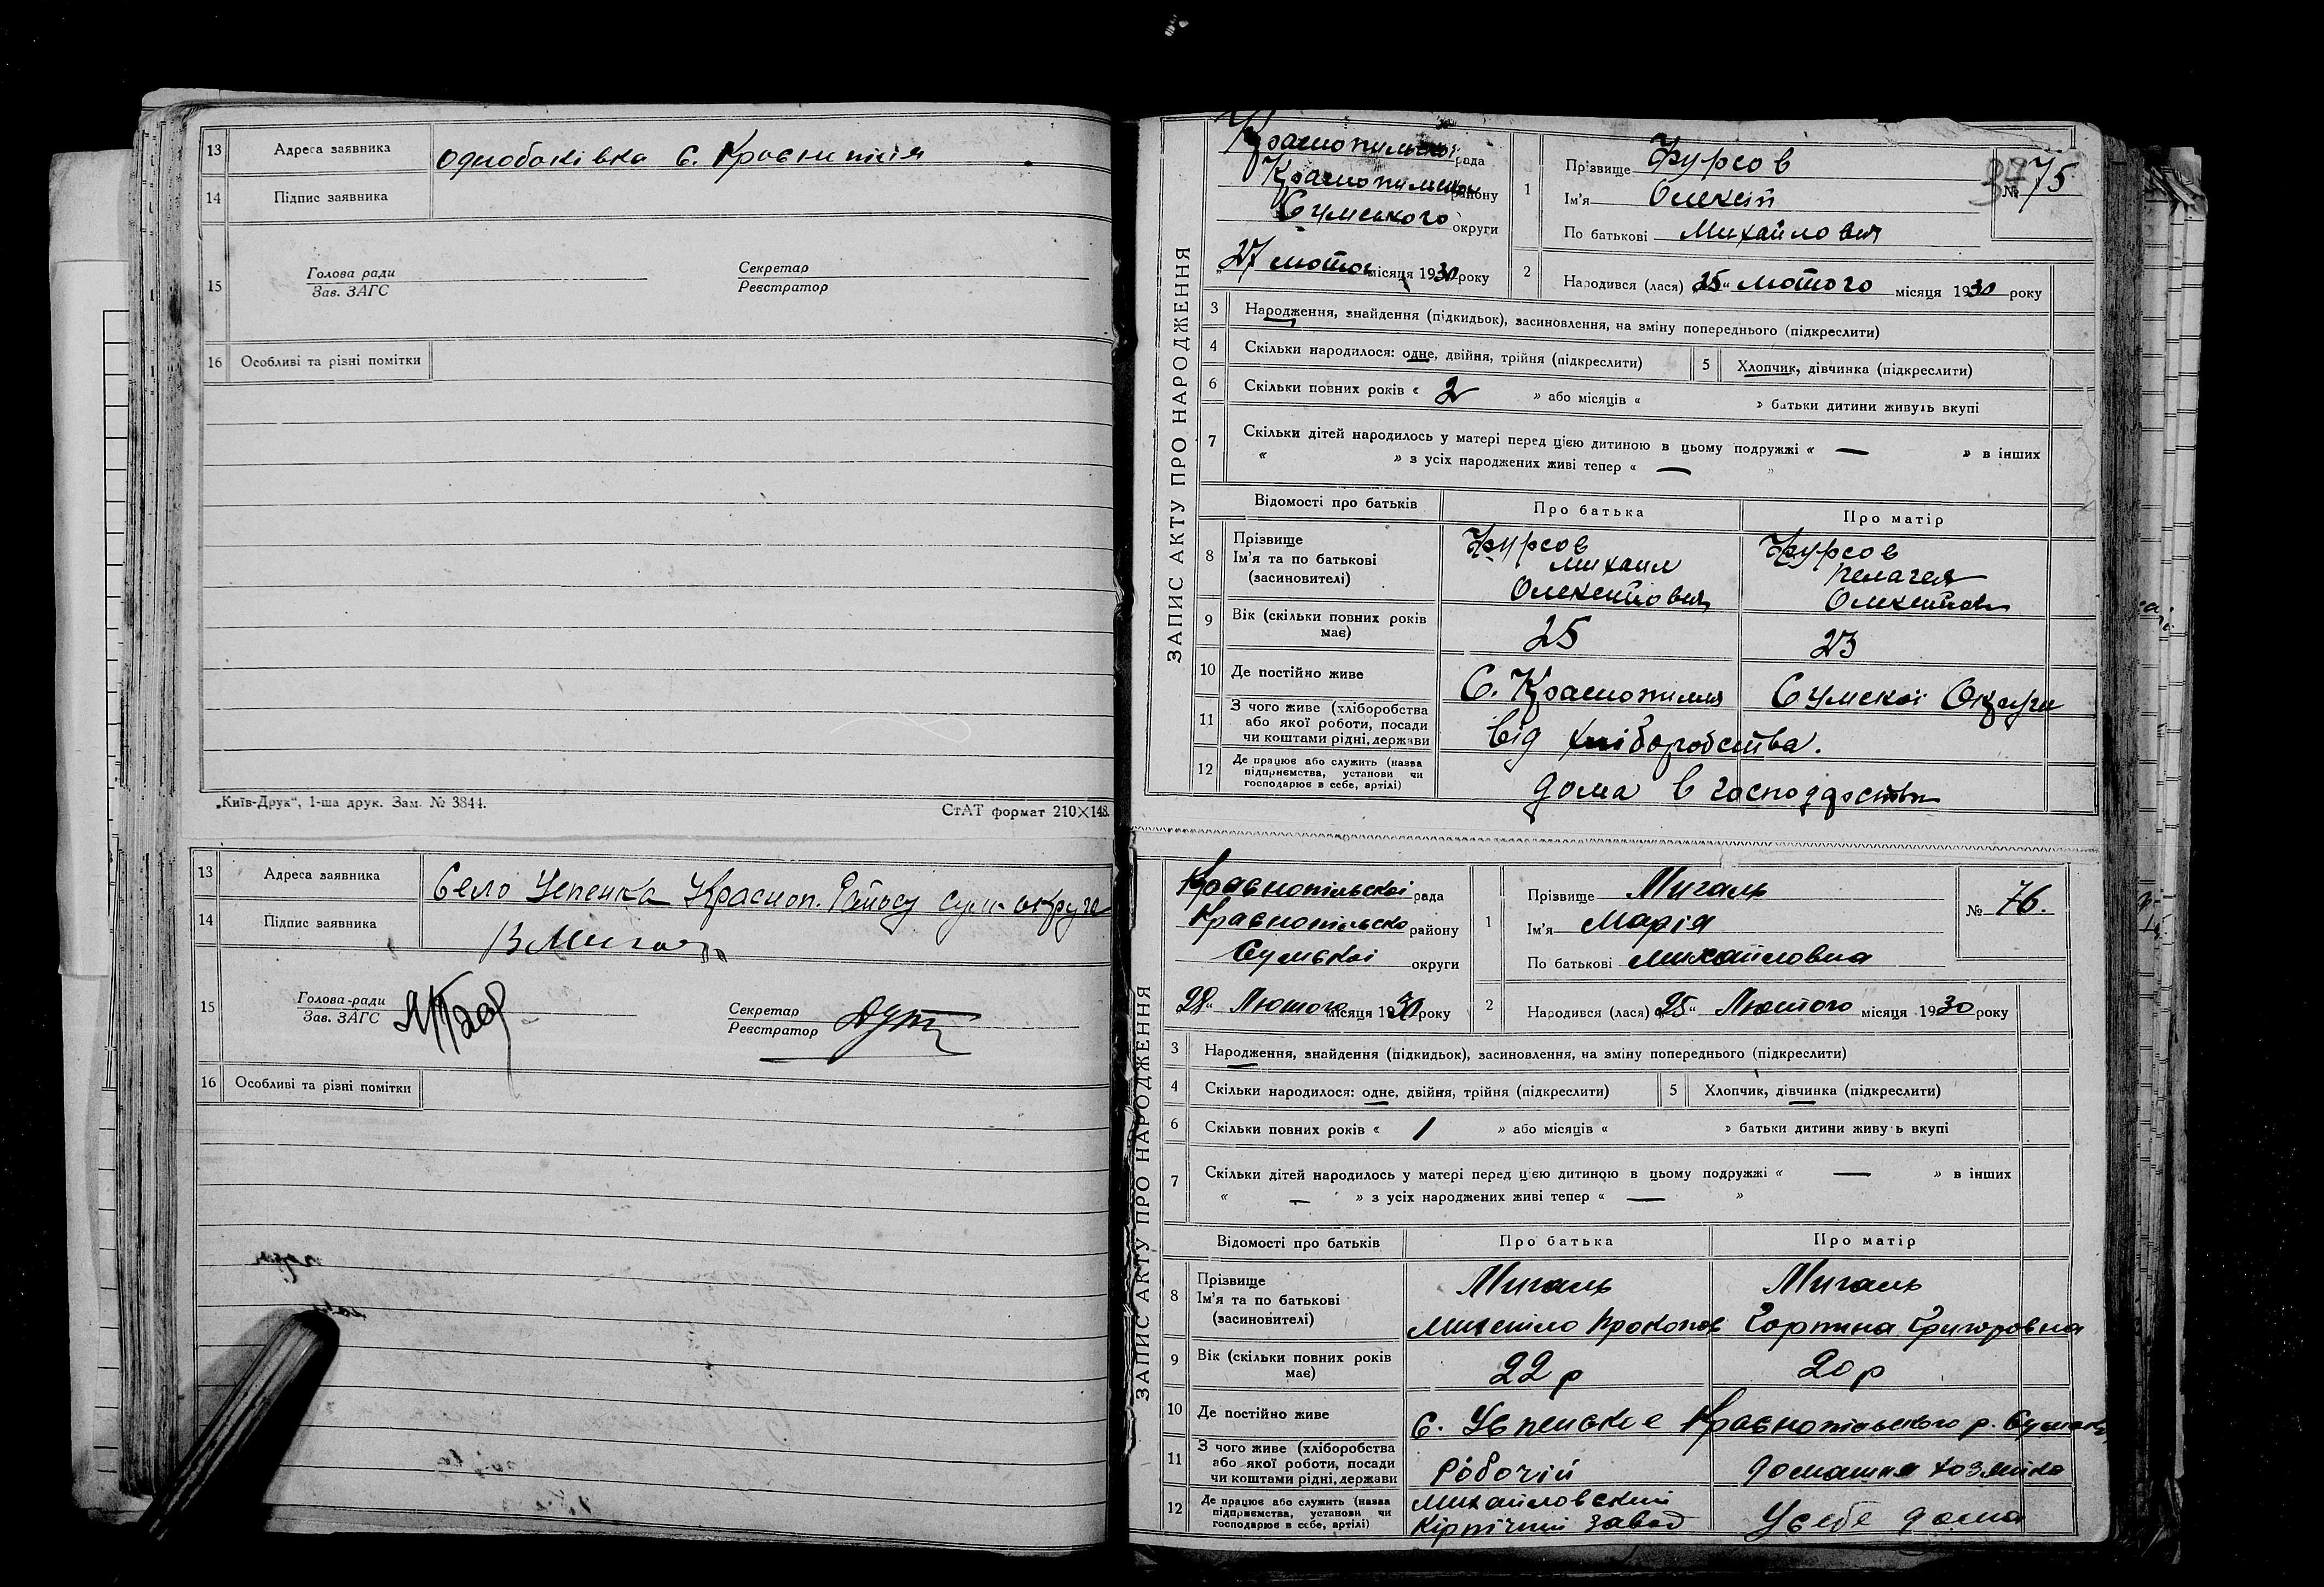 13 Адреса заявника Однобоківка С. Краснопілля
14 Підпис заявника
15 Голова ради
Зав. ЗАГС
Секретар
Реєстратор
16 Особливі та різні помітки
„Київ-Друк“, 1-ша друк. Зам. № 3844.
СтАТ формат 210×148.
13 Адреса заявника Село Успенка Красноп. Району Сум. округа
14 Підпис заявника
15 Голова-ради
Зав. ЗАГС
Секретар
Реєстратор
16 Особливі та різні помітки
ЗАПИС АКТУ ПРО НАРОДЖЕННЯ
рада
району
Сумського округи
„27 лютого місяця 1930 року
1 Прізвище Фурсов
Ім'я Олексій
По батькові Михайлович
№ 75
37
2 Народився (лася) „25“ лютого місяця 1930 року
3 Народження, знайдення (підкидьок), засиновлення, на зміну попереднього (підкреслити)
4 Скільки народилося: одне, двійня, трійня (підкреслити) 5 Хлопчик, дівчинка (підкреслити)
6 Скільки повних років « 2 » або місяців « » батьки дитини живуть вкупі
7 Скільки дітей народилось у матері перед цією дитиною в цьому подружжі « — » в інших
« » з усіх народжених живі тепер « — »
Відомості про батьків Про батька Про матір
8 Прізвище Фурсов Фурсов
Ім'я та по батькові Михаил Пелагея
(засиновителі) Олексійович
9 Вік (скільки повних років має) 25 23
10 Де постійно живе С. Краснопилля Сумскої Округи
11 З чого живе (хліборобства або якої роботи, посади чи коштами рідні, держави від хліборобства.
12 Де працює або служить (назва підприємства, установи чи господарює в себе, артілі) дома в господарстви
ЗАПИС АКТУ ПРО НАРОДЖЕННЯ
Краснопільскої рада
Краснопільско району
Сумскої округи
28“ Лютого місяця 1930 року
1 Прізвище Мигаль
Ім'я Марія
По батькові Михайловна
№ 76.
2 Народився (лася) „25“ Лютого місяця 1930 року
3 Народження, знайдення (підкидьок), засиновлення, на зміну попереднього (підкреслити)
4 Скільки народилося: одне, двійня, трійня (підкреслити) 5 Хлопчик, дівчинка (підкреслити)
6 Скільки повних років « 1 » або місяців « » батьки дитини живу ь вкупі
7 Скільки дітей народилось у матері перед цією дитиною в цьому подружжі « — » в інших
« — » з усіх народжених живі тепер « — »
Відомості про батьків Про батька Про матір
8 Прізвище Мигаль Мигаль
Ім'я та по батькові Михайло Прокопов Горпина Григоровна
(засиновителі)
9 Вік (скільки повних років має) 22 р 20 р
10 Де постійно живе С. Успенське Краснопільского р. Сумск
11 З чого живе (хліборобства або якої роботи, посади чи коштами рідні, держави Робочій домашня хозяйка
12 Де працює або служить (назва підприємства, установи чи господарює в себе, артілі) Михайловский Кірпічний завод Усебе дома